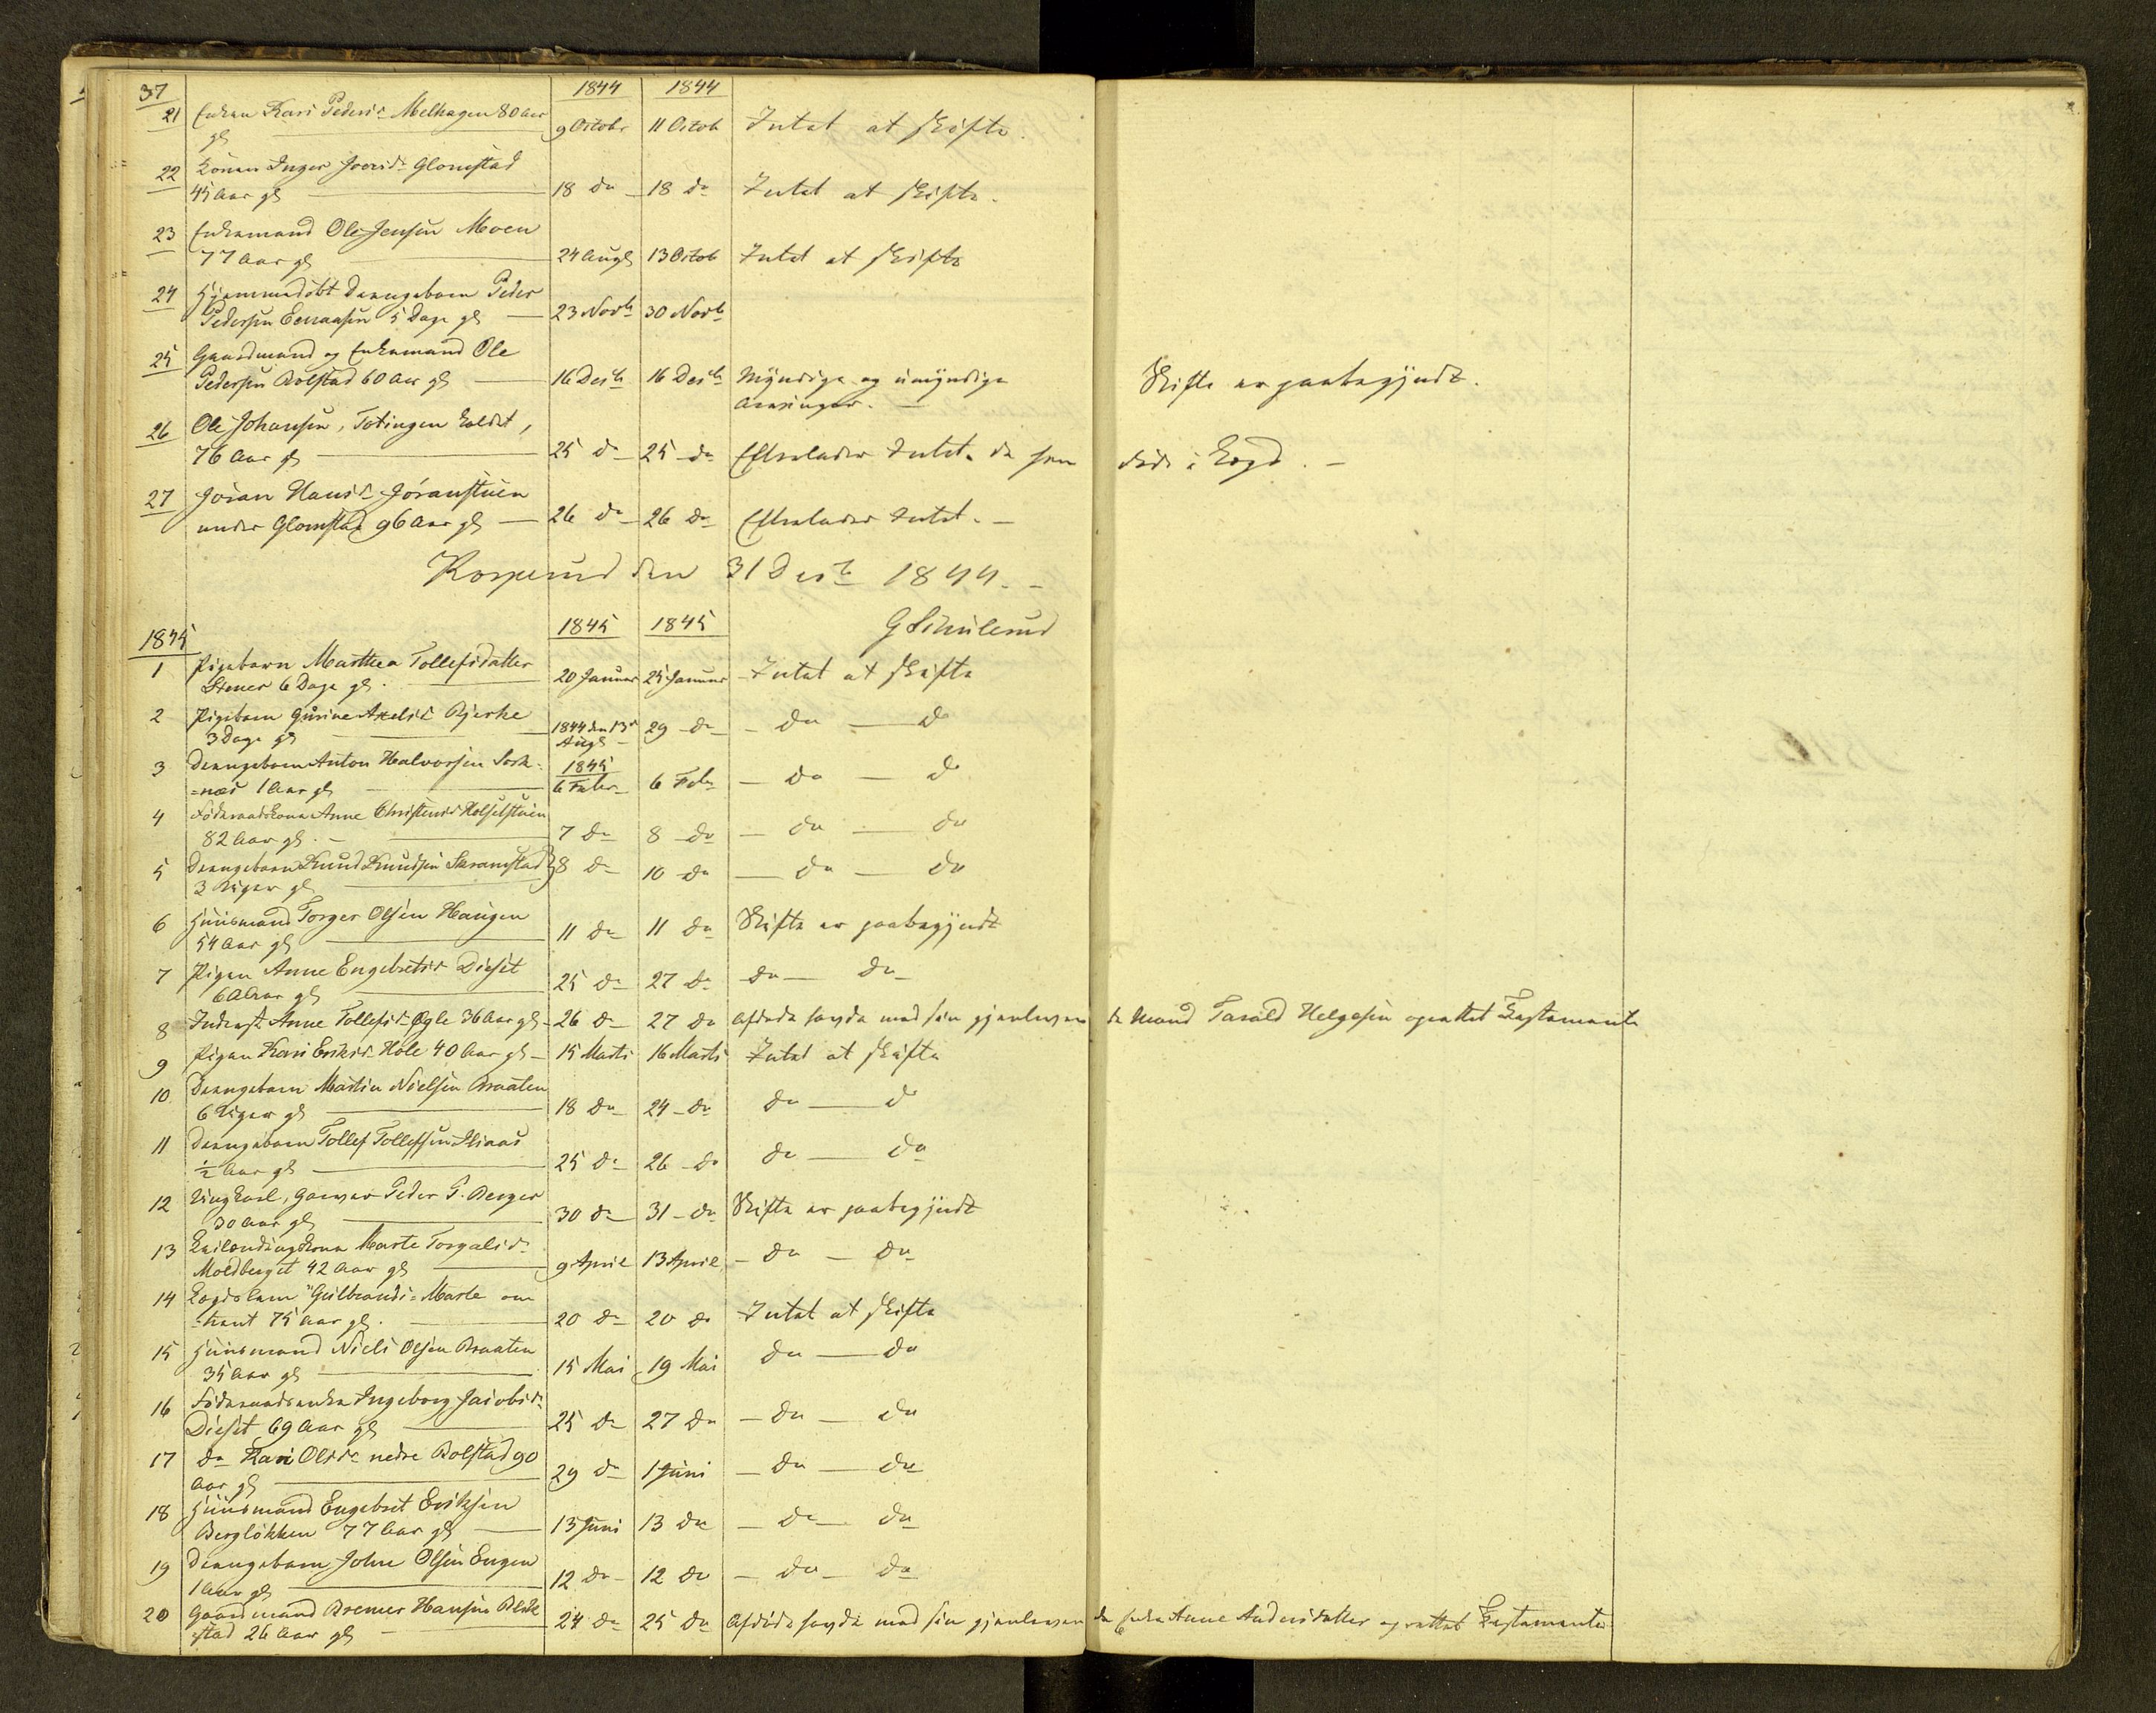 37 1844 1844
21 Enken Kari Pedersd. Melhagen 80 Aar
gl 9 Octobr 11 Octob Intet at skifte.
22 Konen Inger Joersd. Glomstad
45 Aar gl 18 do 18 do Intet at skifte.
23 Enkemand Ole Jensen Moen
77 Aar gl 24 Augt 13 Octob Intet at skifte
24 Hjemmedøbt Drengebarn Peder
Pedersen 5 Dage gl 23 Novb 30 Novb
25 Gaardmand og Enkemand Ole
Pedersen Bolstad 60 Aar gl 16 Decb 16 Decb Myndige og umyndige Skifte er paabegyndt.
Arvinger.
26 Ole Johansen, Totingen kaldet,
76 Aar gl 25 do 25 do Efterlader Intet, da han døde i Lægd.
27 Jöran Hansd. Jöranstuen
under Glomstad 96 Aar gl 26 do 26 do Efterlader Intet.
Korperud den 31 Decb 1844.
1845 1845 G Schulerud
1845
1 Pigebarn Marthea Tollefsdatter
Stener 6 Dage gl. 20 Januar 25 Januar Intet at skifte
2 Pigebarn Gurine Axelsd. Bjerke
3 Dage gl 1844 den 13de 29 do do do
Augt
3 Drengebarn Anton Halvorsen Sork= 1845
=næs 1 Aar gl 6 Feber 6 Feb do do
4 Föderaadskone Anne Christensd.
82 Aar gl. 7 do 8 do do do
5 Drengebarn Knud Knudsen Skramstad
3 Uger gl 8 do 10 do do do
6 Huusmand Torger Olsen Haugen
54 Aar gl 11 do 11 do Skifte er paabegyndt
7 Pigen Anne Engebretsd. Dieset
60 Aar gl 25 do 27 do do do
8 Inderst. Anne Tollefsd. Øgle 36 Aar gl 26 do 27 do Afdöde havde med sin gjenlevende Mand Tarald Helgesen oprettet Testamente
9 Pigen Kari Eriksd. Hole 40 Aar gl 15 Marts 16 Marts Intet at skifte
10 Drengebarn Martin Nielsen Braaten
6 Uger gl 18 do 24 do do do
11 Drengebarn Tollef Tollefsen
½ Aar gl 25 do 26 do do do
12 Ungkarl, Garver Peder P. Berger
30 Aar gl 30 do 31 do Skifte er paabegyndt
13 Marte Torgalsd.
Moldberget 42 Aar gl 9 April 13 April do do
14 Lægdslem "Gulbrands=Marte om
=hent 75 Aar gl. 20 do 20 do Intet at skifte
15 Huusmand Niels Olsen Braaten
35 Aar gl 15 Mai 19 Mai do do
16 Föderaadsenke Ingeborg Jacobsd.
Dieset 69 Aar gl 25 do 27 do do do
17 do Kari Olsd. nedre Bolstad 90
Aar gl 29 do 1 Juni do do
18 Huusmand Engebret Eriksen
Berglökken 77 Aar gl 13 Juni 13 do do do
19 Drengebarn Johne Olsen Engen
1 Aar gl 12 do 12 do do do
20 Gaardmand Bremer Hansen Blik
stad 26 Aar gl 24 do 25 do Afdöde havde med sin gjenlevende Enke Anne Andersdatter oprettet Testamente